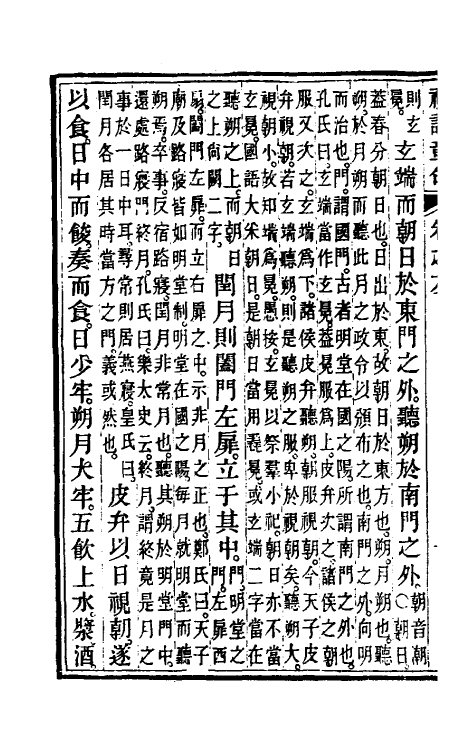 則玄
冕。
玄端而朝日於東門之外。聽朔於南門之外。
朝音朝
○朝日
蓋春分朝日也。日出於東。故朝日於東方也。朔。月朔也。聽
朔。於月朔而聽此月之政令以頒布之也。南門之外。向明
而治也。門謂國門。古者明堂在國之陽。所謂南門之外也。
孔氏曰。玄端當作玄冕。蓋冕服爲上。皮弁次之。諸侯之朝
服又次之。玄端爲下。諸侯皮弁聽朔。朝服視朝。今天子皮
弁視朝。若玄端聽朔。則是聽朔之服卑於視朝矣。聽朔大。
視朝小。故知端爲冕。愚按。玄冕以祭羣小祀。朝日亦不當
玄冕。國語大采朝日。是朝日當用毳冕。或玄端二字當在
聽朔之上。而朝日
之上尚闕二字。
閏月則闔門左扉。立于其中。
門。明堂之
門。左扉西
扇。闔門左扉而立右扉之中。示非月之正也。鄭氏曰。天子
廟及路寢皆如明堂制。明堂在國之陽。每月就明堂而聽
朔焉。卒事。反宿路寢。閏月非常月也。聽其朔於明堂門中。
還處路寢門終月。孔氏曰。樂太史云。終月。謂終竟是月之
事於一日中耳。尋常則居燕寢。皇氏曰。
閏月各居其時當方之門。義或然也。
皮弁以日視朝。遂
以食。日中而餕。奏而食。日少牢。朔月大牢。五飲上水。漿酒